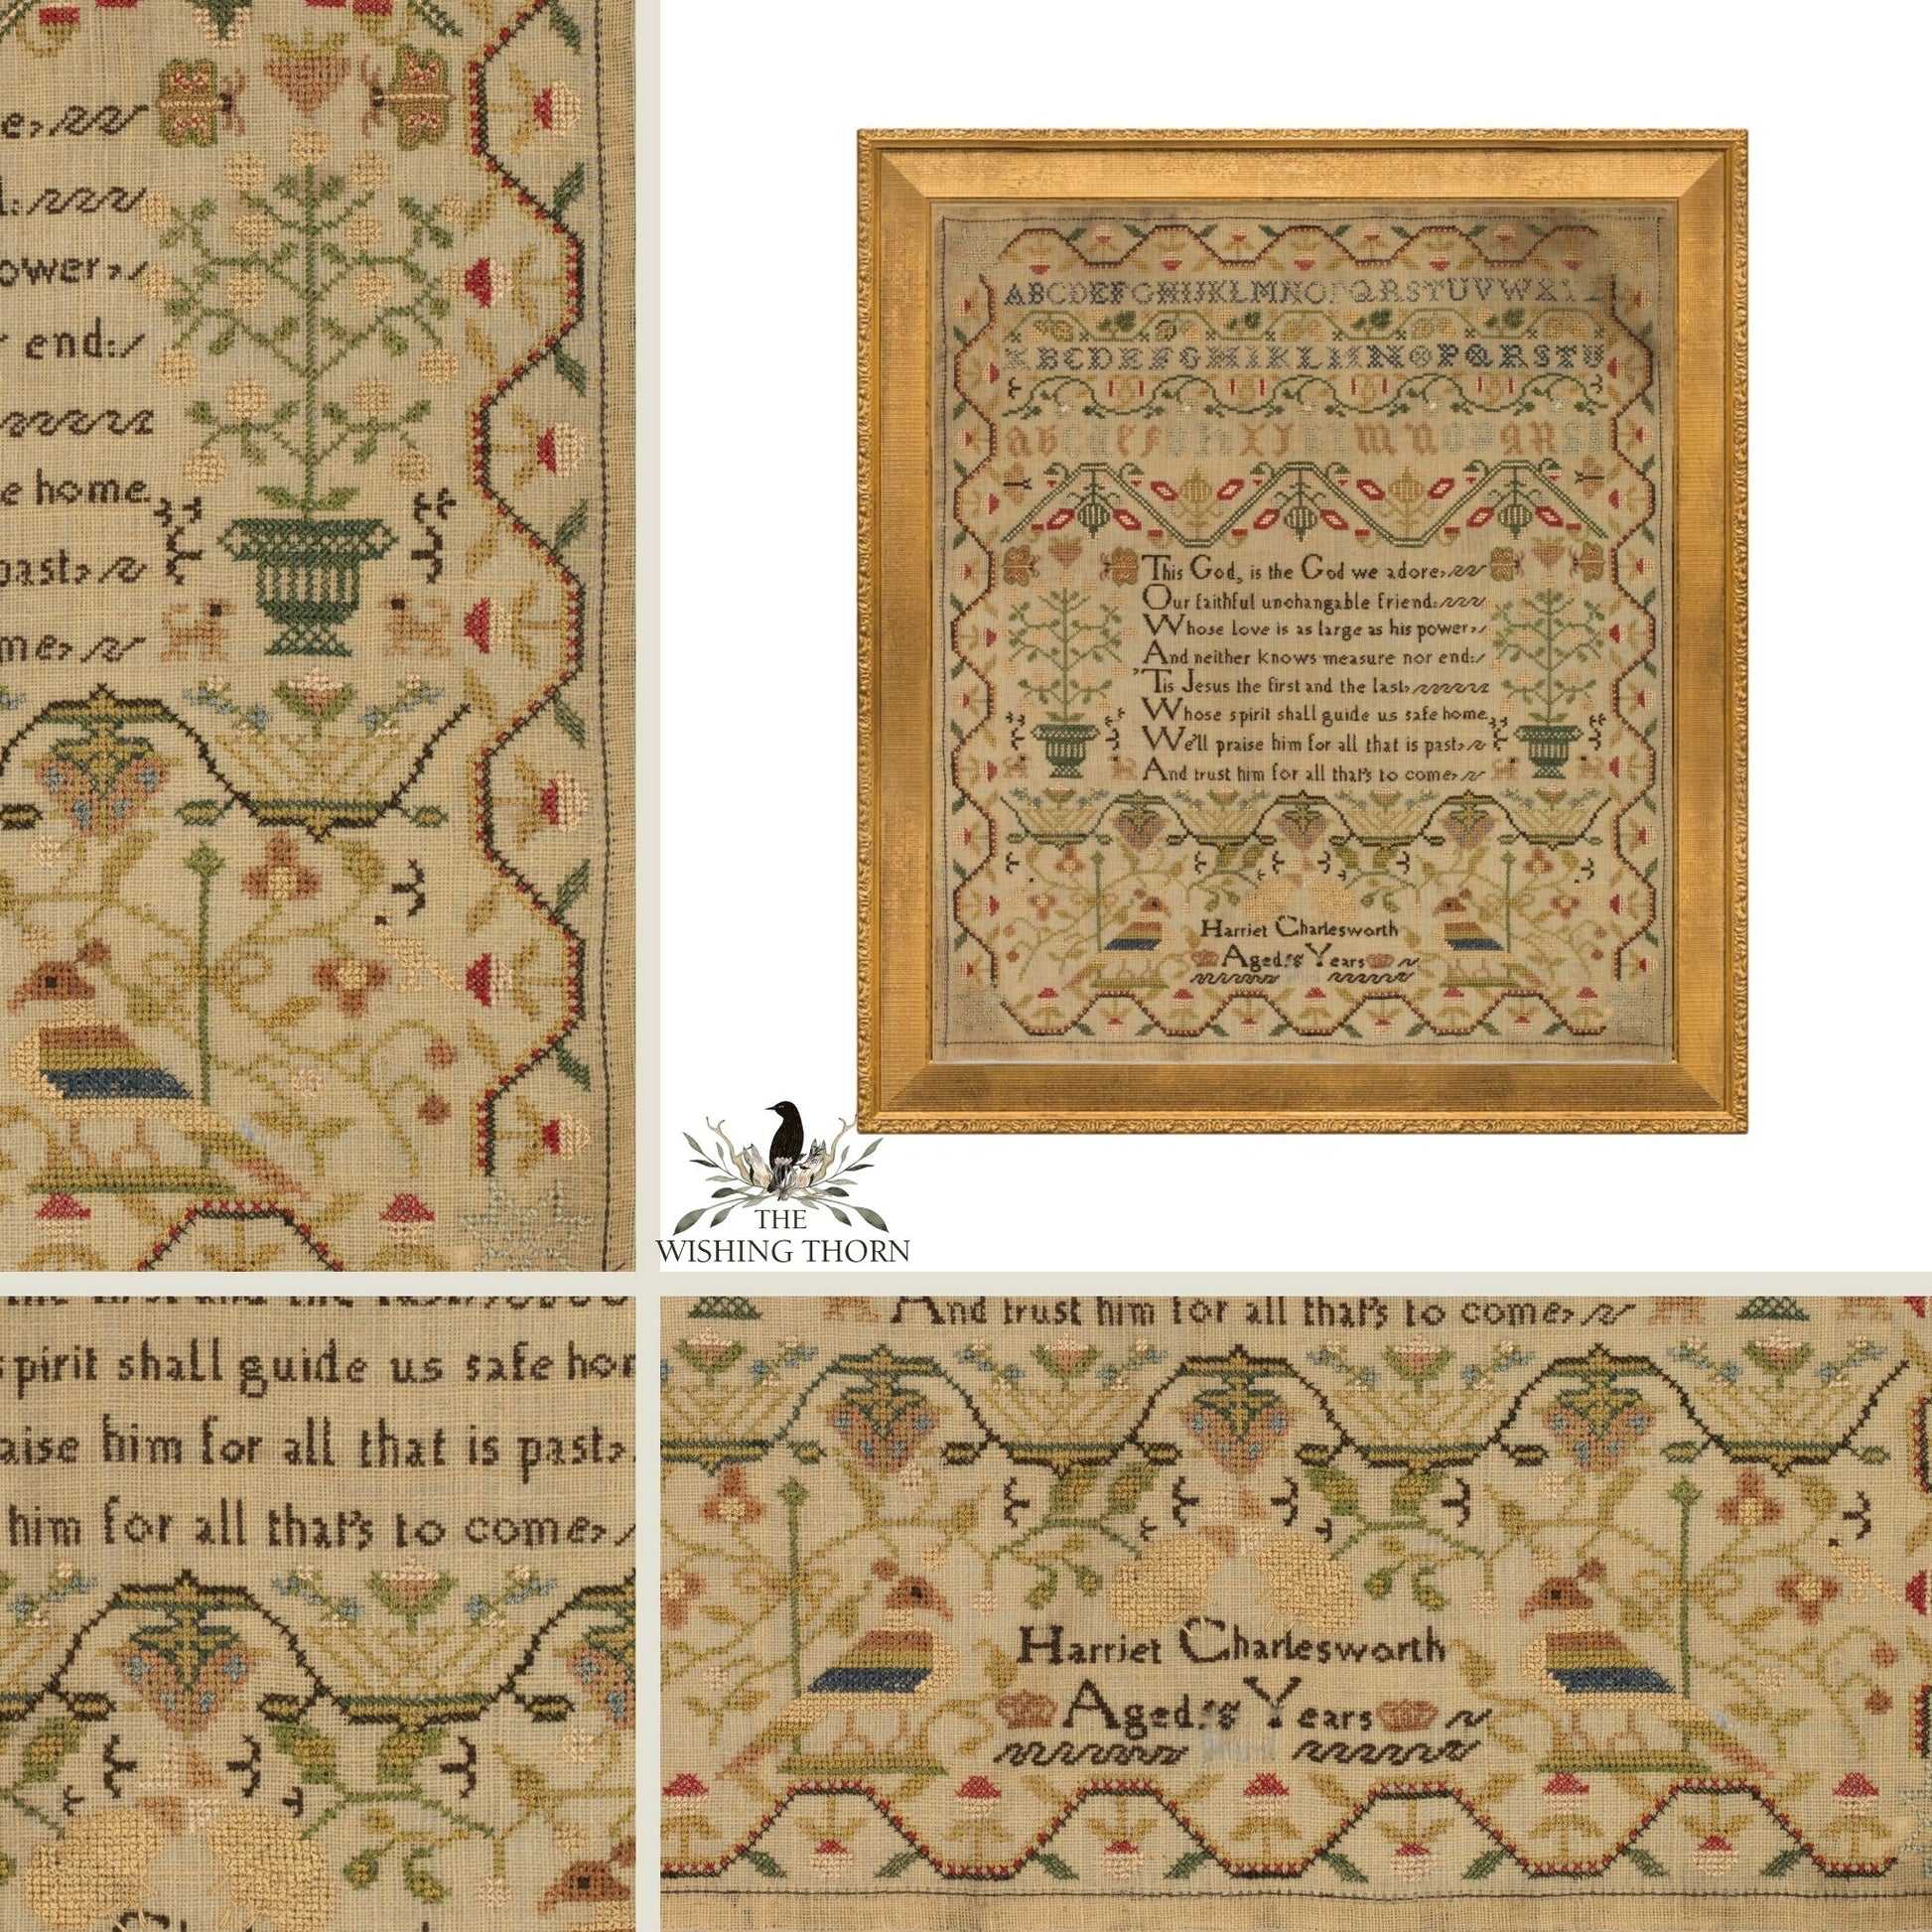 e,
l:
ower,
r end:
e home
past,
me,
ABCDEFGHIJKLMNOPQRSTUVWXYZ
ABCDEFGHIKLMNOPQRSTU
This God, is the God we adore,
Our faithful unchangable friend:
Whose love is as large as his power,
And neither knows measure nor end:
'Tis Jesus the first and the last,
Whose spirit shall guide us safe home,
We'll praise him for all that is past,
And trust him for all that's to come,
Harriet Charlesworth
Aged 8 Years
THE
WISHING THORN
spirit shall guide us safe hom
aise him for all that is past,
him for all that's to come,
And trust him for all that's to come,
Harriet Charlesworth
Aged 8 Years